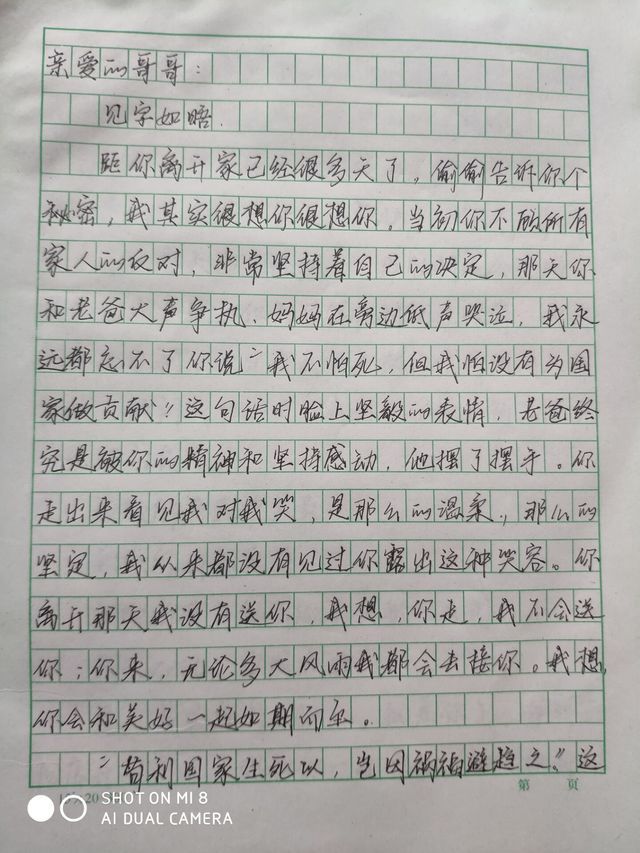 亲爱的哥哥：
见字如晤.
距你离开家已经很多天了，偷偷告诉你个
秘密，我其实很想你很想你。当初你不顾所有
家人的反对，非常坚持着自己的决定，那天你
和老爸大声争执、妈妈在旁边低声哭泣，我永
远都忘不了你说“我不怕死，但我怕没有为国
家做贡献”这句话时脸上坚毅的表情，老爸终
究是被你的精神和坚持感动，他摆了摆手。你
走出来看见我对我笑，是那么的温柔，那么的
坚定，我从来都没有见过你露出这种笑容。你
离开那天我没有送你，我想，你走，我不会送
你；你来，无论多大风雨我都会去接你。我想，
你会和美好一起如期而至。
“苟利国家生死以，岂因祸福避趋之”这
20
第 页
SHOT ON MI 8
AI DUAL CAMERA